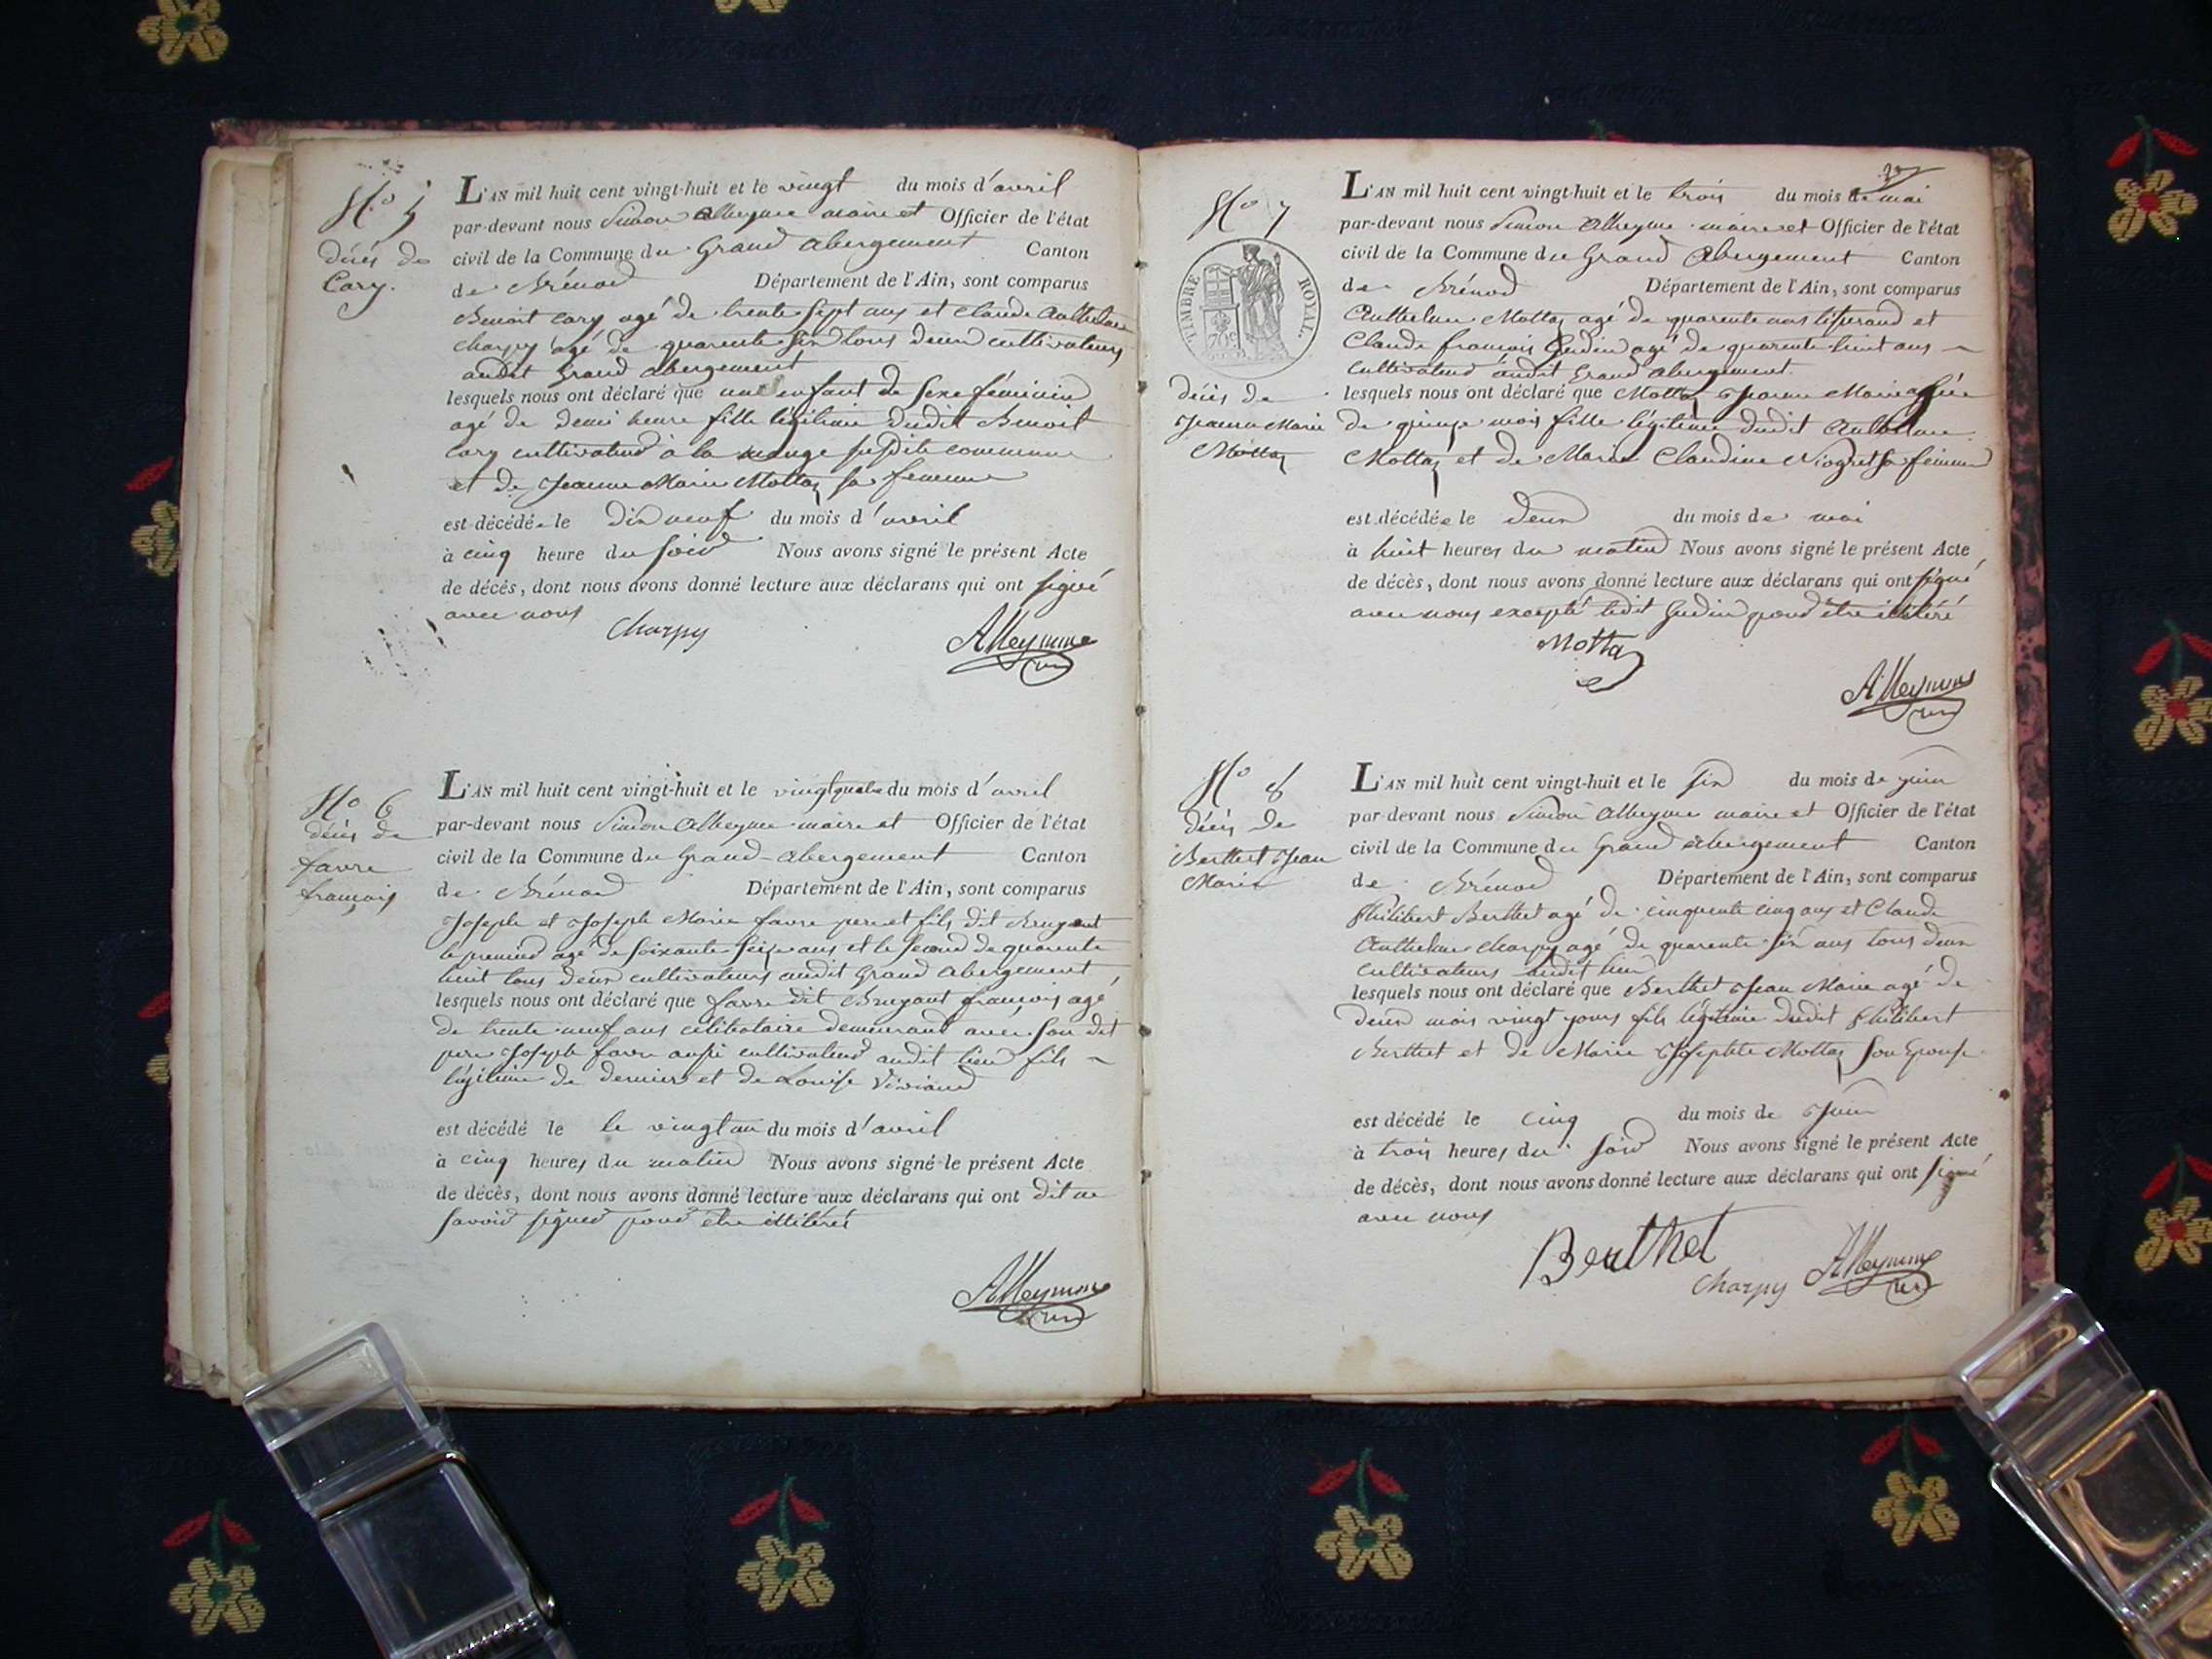 No 5
décès de
Cary.
L'AN mil huit cent vingt-huit et le vingt du mois d'avril
par-devant nous Simon Alleyme maire et Officier de l'état
civil de la Commune du Grand abergement Canton
de Brénod Département de l'Ain, sont comparus
Benoit Cary agé de trente sept ans et Claude Anthelme
Charpy agé de quarente six tous deux cultivateurs
audit Grand abergement
lesquels nous ont déclaré que une enfant de sexe féminin
agé de demi heure fille légitime dudit Benoit
Cary cultivateur à la susdite commune
et de Jeanne Marie Mottaz sa femme
est décédée le dix neuf du mois d'avril
à cinq heure du soir Nous avons signé le présent Acte
de décès, dont nous avons donné lecture aux déclarans qui ont signé
avec nous
Charpy
Alleymme
No 6
décès de
favre
françois
L'AN mil huit cent vingt-huit et le vingt quatre du mois d'avril
par-devant nous Simon Alleyme maire et Officier de l'état
civil de la Commune du Grand-abergement Canton
de Brénod Département de l'Ain, sont comparus
Joseph et Joseph Marie favre pere et fils dit Bruyant
le premier agé de soixante seize ans et le second de quarente
huit tous deux cultivateurs audit Grand abergement
lesquels nous ont déclaré que favre dit Bruyant françois agé
de trente neuf ans célibataire demeurant avec son dit
pere Joseph favre aussi cultivateur audit lieu fils
légitime de dernier et de Louise Viviand
est décédé le le vingt un du mois d'avril
à cinq heures du matin Nous avons signé le présent Acte
de décès, dont nous avons donné lecture aux déclarans qui ont dit ne
savoir signer pour etre illitérés
Alleymme
No 7
TIMBRE ROYAL.
décès de
Jeanne Marie
Mottaz
L'AN mil huit cent vingt-huit et le trois du mois de mai
par-devant nous Simon Alleyme maire et Officier de l'état
civil de la Commune du Grand Abergement Canton
de Brénod Département de l'Ain, sont comparus
Anthelme Mottaz agé de quarente ans tisserand et
Claude françois Gudin agé de quarente huit ans
cultivateur audit Grand abergement.
lesquels nous ont déclaré que Mottaz Jeanne Marie agée
de quinze mois fille légitime dudit Anthelme
Mottaz et de Marie Claudine Viogret sa femme
est décédée le deux du mois de mai
à huit heures du matin Nous avons signé le présent Acte
de décès, dont nous avons donné lecture aux déclarans qui ont signé
avec nous excepté ledit Gudin pour etre illitéré
Mottaz
Alleymme
No 8
décès de
Berthet Jean
Marie
L'AN mil huit cent vingt-huit et le six du mois de juin
par-devant nous Simon Alleyme maire et Officier de l'état
civil de la Commune du Grand abergement Canton
de Brénod Département de l'Ain, sont comparus
Philibert Berthet agé de cinquente cinq ans et Claude
Anthelme Charpy agé de quarente six ans tous deux
cultivateurs audit lieu
lesquels nous ont déclaré que Berthet Jean Marie agé de
deux mois vingt jours fils légitime dudit Philibert
Berthet et de Marie Josephte Mottaz son Epouse
est décédé le cinq du mois de Juin
à trois heures du soir Nous avons signé le présent Acte
de décès, dont nous avons donné lecture aux déclarans qui ont signé
avec nous
Berthet
Charpy
Alleymme